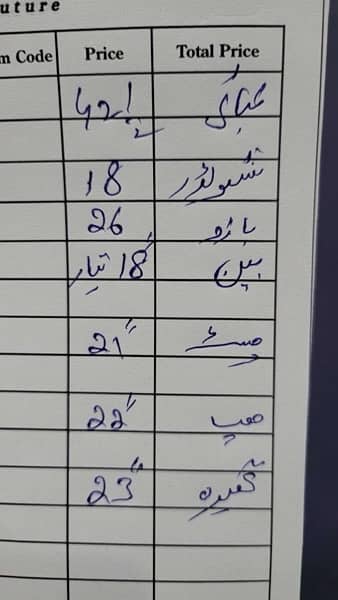 uture
m Code Price Total Price
42½ لمبائی
18 شولڈر
26 بازو
18" تیار بین
21" چسٹ
22" ہپ
23" گھیرہ